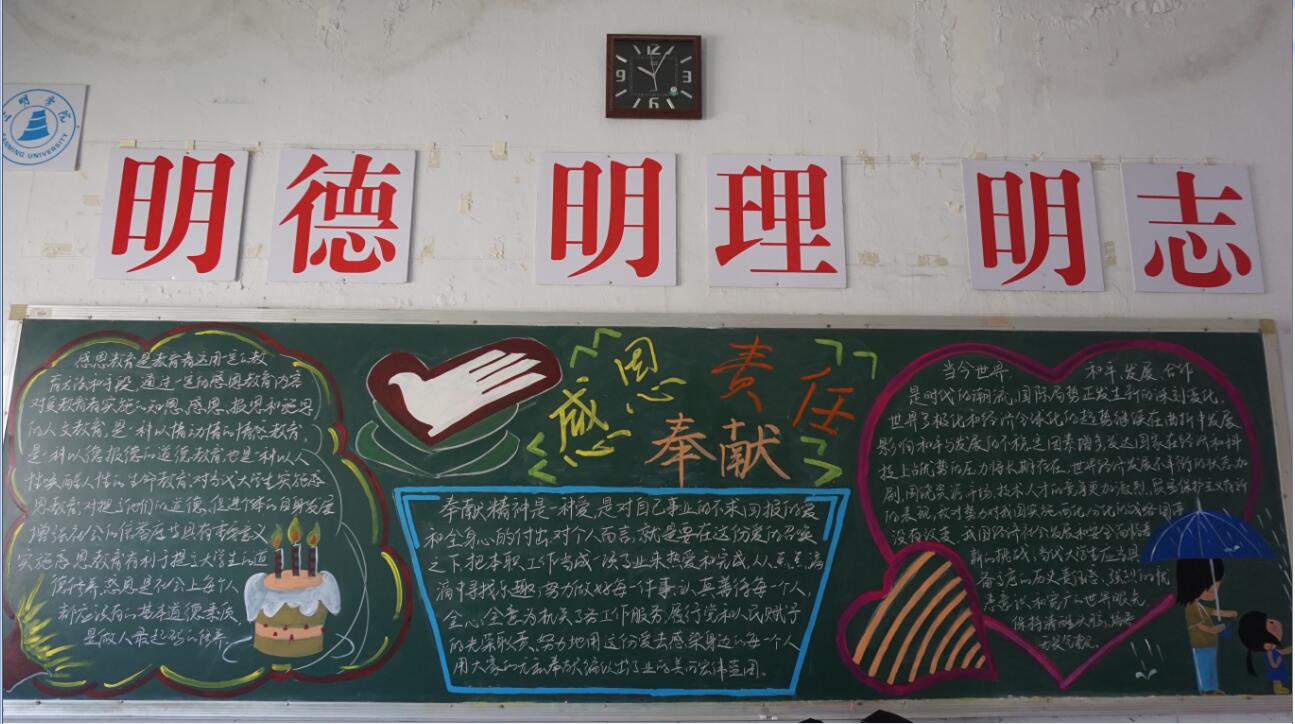 12
9
3
6
明学院
SANMING UNIVERSITY
明德 明理 明志
感恩
责任
奉献
感恩教育是教育者运用一定的教
育方法和手段,通过一定的感恩教育内容
对受教育者实施的知恩、感恩、报恩和施恩
的人文教育,是一种以情动情的情感教育,
是一种以德报德的道德教育,也是一种以人
性唤醒人性的生命教育,对当代大学生实施感
恩教育,对提高他们的道德,促进个体的自身发展
增强社会的
具有重要意义
实施感恩教育有利于提高大学生的道
德修养,感恩是社会上每个人
都应该有的基本道德素质,
是做人最起码的修养。
奉献精神是一种爱,是对自己事业的不求回报的爱
和全身心的付出,对个人而言,就是要在这份爱的召唤
之下,把本职工作当成一项事业来热爱和完成,从点点滴
滴中寻找乐趣;努力做好每一件事、认真善待每一个人,
全心全意为机关了务工作服务,履行党和人民赋予
的光荣职责,努力地用这份爱去感染身边的每一个人
用大家的无私奉献编织出事业的美丽宏伟蓝图。
当今世界, 和平、发展、合作
是时代的潮流,国际局势正发生新的深刻变化,
世界多极化和经济全球化的趋势继续在曲折中发展
影响和平与发展的不稳定因素增多,发达国家在经济和科
技上的优势的压力将长期存在,世界经济发展不平衡的状态加
剧,围绕资源、市场、技术、人才的竞争更加激烈,贸易保护主义有新
的表现,敌对势力对我国实施西化、分化的战略图谋
没有改变,我国经济社会发展和安全面临着
新的挑战,当代大学生应当具
备了高的历史责任感、强烈的忧
患意识和宽广的世界眼光,
保持清醒头脑,